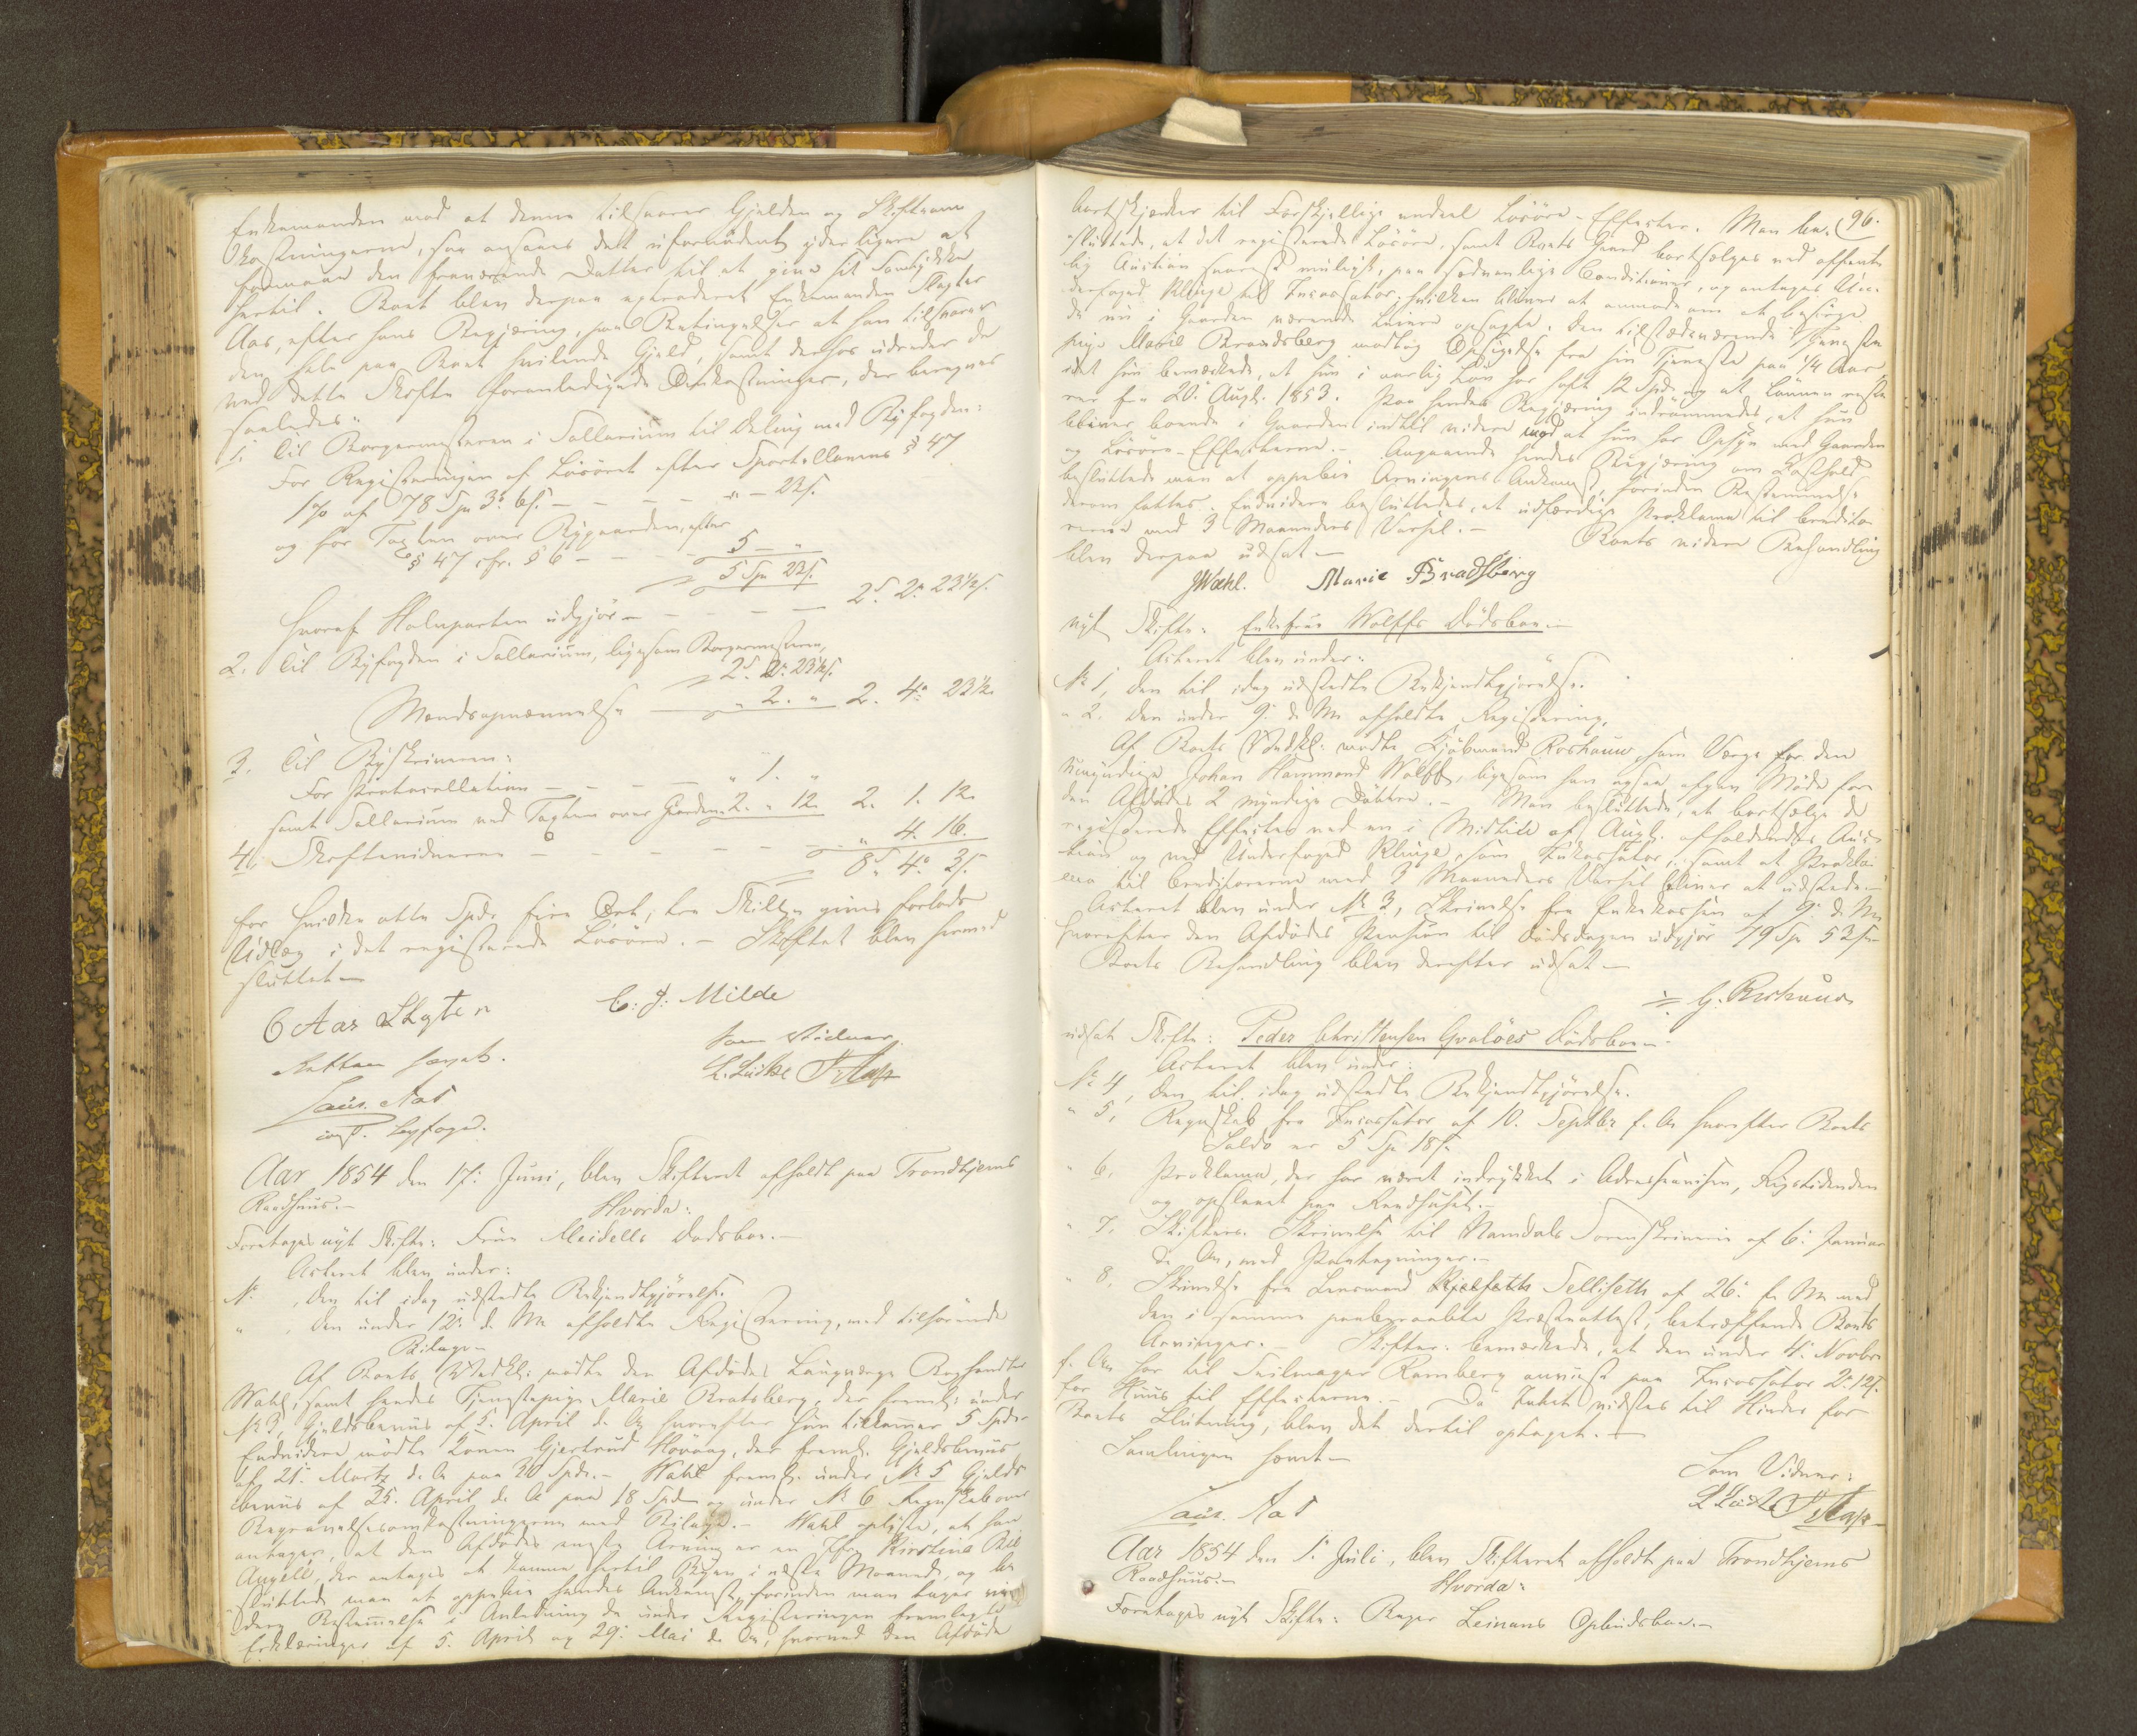 Enkemanden mod at denne tilsvarer Gjelden og Skifteom
kostningerne, saa ansaaes det ufornødent yderligere at
formaae den fraværende Datter til at give sit Samtykke
hertil. Boet blev derpaa extraderet Enkemanden Slagter
Aas, efter hans Begjæring, paa Betingelse at han tilsvarer
den hele paa Boet hvilende Gjeld, samt derhos udreder de
ved dette Skifte foranledigede Omkostninger, der beregnes
saaledes:
1. Til Borgermesteren i Sallarium til Deling med Byfogden:
For Registeringen af Løsøret efter Sportellovens § 47
1 % af 78 Sp 3 # 6 s. - - - - " - 23 s.
og for Taxten over Bygaarden, efter
§ 47 cfr. § 6 - - - 5 - "
5 Sp 23 s.
hvoraf Halvparten udgjør - - - - - 2 S. 2 # 23½ s.
2. Til Byfogden i Sallarium, ligesom Borgermesteren,
2 S. 2 # 23½ s.
Mændsopnævnelse " 2. " 2. 4 # 23½
3. Til Byskriveren:
For Protocollation - - - - " 1. "
samt Sallarium ved Taxten over Gaarden 2. " 12. 2. 1. 12.
4. Skiftevidnerne - - - - - - - " 4. 16.
8 S 4 # 3 s.
for hvilke otte Spd. fire Ort, tre Skilling gives forlods
Udlæg i det registerede Løsøre. - Skiftet blev hermed
sluttet -
O Aas Slagter C. J. Milde
Rettens foged. Som Vidner
L. Lütke
Laur. Aas
const. Byfoged.
Aar 1854 den 17de Juni, blev Skifteret afholdt paa Trondhjems
Raadhuus. - Hvorda:
Foretages nyt Skifte: Frue Meidells Dødsboe. -
Acteret blev under:
No , den til idag udstedte Bekjendtgjørelse.
" , den under 12te d. M. afholdte Registering, med tilhørende
Bilage -
Af Boets Vedkl: mødte den Afdødes Laugværge Boghandler
Wahl, samt hendes Tjenestepige Marie Bratsberg, der freml: under
No 3, Gjeldsbeviis af 5. April d. A. hvorefter hun tilkommer 5 Spd.
Endvidere mødte Konen Gjertrud Hovaag, der freml. Gjeldsbeviis
af 21de Marts d. A paa 30 Spd. - Wahl freml: under No 5 Gjelds
beviis af 25. April d. A paa 18 Spd og under No 6 Regnskab over
Begravelsesomkostningerne med Bilage. - Wahl oplyste, at han
antager, at den Afdødes eneste Arving er en Jfr Kirstine Bie
Angell, der antages at komme hertil Byen i næste Maaned, og be
sluttede man at oppebie hendes Ankomst, forinden man tager vi
dere Bestemmelse i Anledning de under Registeringen fremlagte
Erklæringer af 5. April og 29de Mai d. A., hvorved den Afdøde
96.
bortskjænker til Forskjellige endeel Løsøre-Effecter. Man be-
sluttede, at det registerede Løsøre, samt Boets Gaard bortsælges ved offent
lig Auction snarest muligt, paa sædvanlige Conditioner, og antages Un-
derfoged Kluge til Incassator; hvilken bliver at anmode om at besørge
de nu i Gaarden værende Leiere opsagte. Den tilstedeværende Tjeneste
pige Marie Brandsberg modtog Opsigelse fra sin Tjeneste paa 1/4 Aar,
idet hun bemærkede, at hun i aarlig Løn har havt 12 Spd og at Lønnen reste
rer fra 20de Augt. 1853. Paa hendes Begjæring indrømmedes, at hun
bliver boende i Gaarden indtil videre mod at hun har Opsyn med Gaarden
og Løsøre-Effecterne. - Angaaende hendes Begjæring om Kosthold
besluttede man at oppebie Arvingens Ankomst, forinden Bestemmelse
derom fattes. Endvidere besluttedes, at udfærdige Proklama til Credito
rerne med 3 Maaneders Varsel. - Boets videre Behandling
blev derpaa udsat -
JWahl. Marie Bradsberg
nyt Skifte: Enkefrue Wolffs Dødsboe. -
Acteret blev under:
No 1, den til idag udstedte Bekjendtgjørelse.
" 2. den under 9de d. M. afholdte Registering.
Af Boets Vedkl: mødte Kjøbmand Roshauw som Værge for den
umyndige Johan Hammond Wolff, ligesom han ogsaa afgav Møde for
den Afdødes 2 myndige Døttre. - Man besluttede, at bortsælge de
registerede Effecter ved en i Midten af Augt. afholdendes Auc-
tion og med Underfoged Kluge, som Inkassator, samt at Prokla-
ma til Creditorerne med 3 Maaneders Varsel bliver at udstede. -
Acteret blev under No 3, Skrivelse fra Enkekassen af 9de d. M
hvorefter den Afdødes Pension til Dødsdagen udgjør 49 Sp 53 s. -
Boets Behandling blev derefter udsat -
G. Roshauw
udsat Skifte: Peder Christensen Gvaløes Dødsboe. -
Acteret blev under:
No 4, den til idag udstedte Bekjendtgjørelse.
" 5, Regnskab fra Incassator af 10. Septbr f. A. hvorefter Boets
Saldo er 5 Sp 18 s. -
" 6. Proklama, der har været indrykket i Adresseavisen, Rigstidenden
og opslaaet paa Raadhuset. -
" 7. Skifters. Skrivelse til Namdals Sorenskriverie af 6te Januar
d. A., med Paategninger. -
" 8. Skrivelse fra Lensmand Sellisett af 26de f. M med
den i samme paaberaabte Præsteattest, betræffende Boets
Arvinger. - Skifter: bemærkede, at den under 4de Novbr.
f. A. har til Seilmager Ramberg anviist paa Incassator 2 # 12 s.
for Huus til Effecterne. - Da Intet vidstes til Hinder for
Boets Slutning, blev det dertil optaget. -
Samlingen hævet -
Som Vidner:
Laur. Aas
L Lütke
Aar 1854 den 1. Juli, blev Skifteret afholdt paa Trondhjems
Raadhuus. - Hvorda:
Foretages nyt Skifte: Bager Leinans Opbudsboe. -